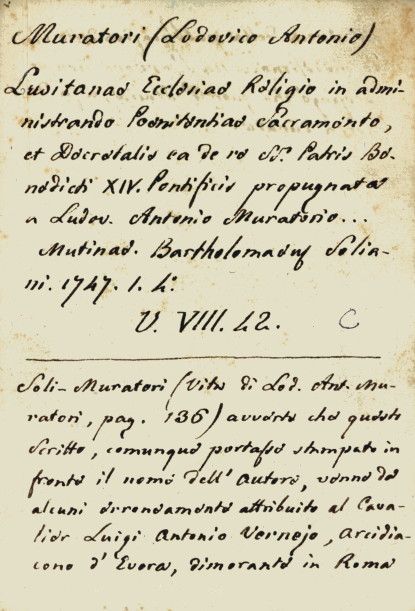 Muratori (Lodovico Antonio)
Lusitanae Ecclesiae Religio in admi-
nistrando Poenitentiae Sacramento,
et Decretalis ea de re SS. Patris Be-
nedicti XIV. Pontificis propugnatae
a Ludov. Antonio Muratorio...
Mutinae. Bartholomaeus Solia-
ni. 1747. 1. 4.°
V. VIII. 42. C
Soli-Muratori (Vita di Lod. Ant. Mu-
ratori, pag. 136) avverte che questo
scritto, comunque portasse stampato in
fronte il nome dell'autore, venne da
alcuni erroneamente attribuito al Cava-
lier Luigi Antonio Vernejo, Arcidia-
cono d'Evora, dimorante in Roma